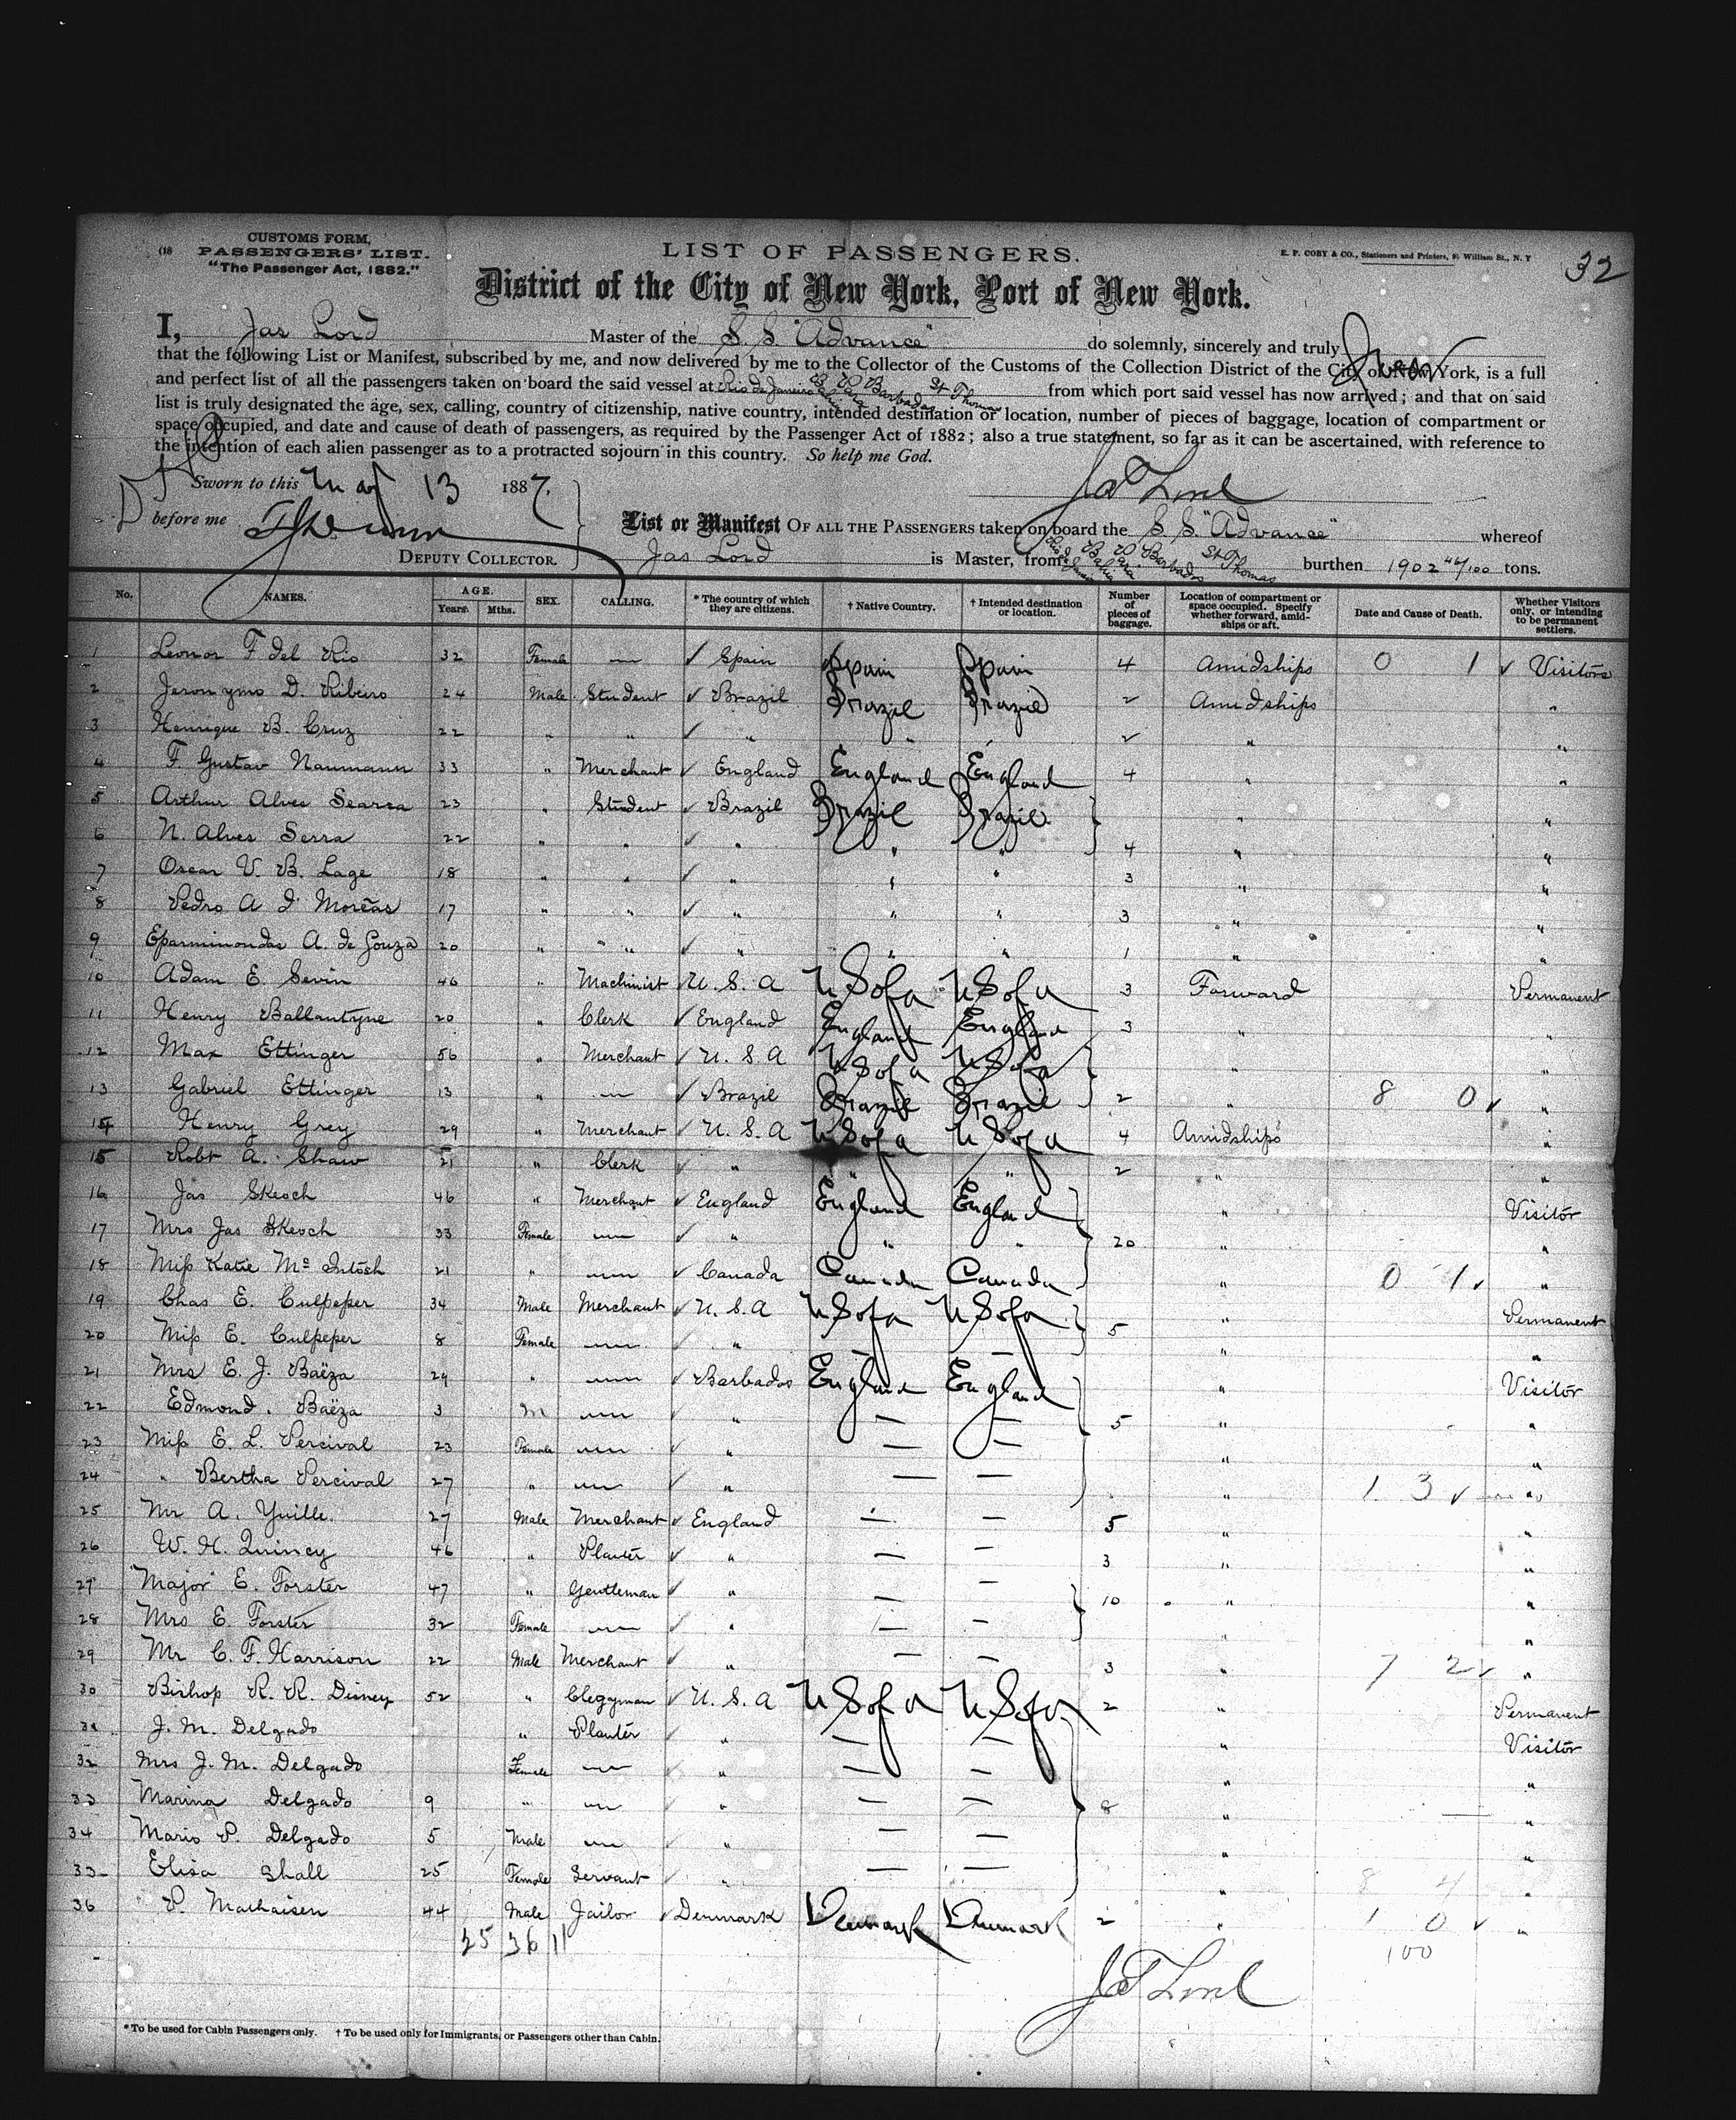 (18
CUSTOMS FORM,
PASSENGERS' LIST.
"The Passenger Act, 1882."
LIST OF PASSENGERS.
E. P. COBY & CO., Stationers and Printers, William St., N. Y
32
District of the City of New York, Port of New York.
I, Jas Lord Master of the S. S. "Advance" do solemnly, sincerely and truly swear
that the following List or Manifest, subscribed by me, and now delivered by me to the Collector of the Customs of the Collection District of the City of New York, is a full
and perfect list of all the passengers taken on board the said vessel at Rio de Janeiro Bahia Para Barbados St Thomas from which port said vessel has now arrived; and that on said
list is truly designated the age, sex, calling, country of citizenship, native country, intended destination or location, number of pieces of baggage, location of compartment or
space occupied, and date and cause of death of passengers, as required by the Passenger Act of 1882; also a true statement, so far as it can be ascertained, with reference to
the intention of each alien passenger as to a protracted sojourn in this country. So help me God.
Sworn to this May 13 1887,
Jas Lord
before me
DEPUTY COLLECTOR.
List or Manifest OF ALL THE PASSENGERS taken on board the S. S. "Advance" whereof
Jas Lord is Master, from Rio de Janeiro Bahia Para Barbados St Thomas burthen 1902 44/100 tons.
No. NAMES. AGE. Years. Mths. SEX. CALLING. * The country of which they are citizens. † Native Country. † Intended destination or location. Number of pieces of baggage. Location of compartment or space occupied. Specify whether forward, amidships or aft. Date and Cause of Death. Whether Visitors only, or intending to be permanent settlers.
1 Leonor F del Rio 32 Female — ✓ Spain Spain Spain 4 Amidships 0 1 ✓ Visitors
2 Jeronymo D. Ribeiro 24 Male Student ✓ Brazil Brazil Brazil 2 Amidships "
3 Henrique B. Cruz 22 " " ✓ " " " 2 " "
4 F. Gustav Naumann 33 " Merchant ✓ England England England 4 " "
5 Arthur Alves Searsa 23 " Student ✓ Brazil Brazil Brazil " "
6 N. Alves Serra 22 " " ✓ " " " 4 " "
7 Oscar V. B. Lage 18 " " ✓ " " " 3 " "
8 Pedro A d' Morẽas 17 " " ✓ " " " 3 " "
9 Eparminondas A. de Souza 20 " " ✓ " " " 1 " "
10 Adam E. Sevin 46 " Machinist ✓ U. S. A U S of A U S of A 3 Forward Permanent
11 Henry Ballantyne 20 " Clerk ✓ England England England 3 " "
12 Max Ettinger 56 " Merchant ✓ U. S A U S of A U S of A " "
13 Gabriel Ettinger 13 " — ✓ Brazil Brazil Brazil 2 " 8 0 ✓ "
14 Henry Grey 29 " Merchant ✓ U. S. A U S of A U S of A 4 Amidships "
15 Robt A. Shaw 21 " Clerk ✓ " " " 2 " "
16 Jas Skeoch 46 " Merchant ✓ England England England " Visitor
17 Mrs Jas Skeoch 33 Female — ✓ " " " 20 " "
18 Miss Katie McIntosh 21 " — ✓ Canada Canada Canada " 0 1 ✓ "
19 Chas E. Culpeper 34 Male Merchant ✓ U. S. A U S of A U S of A " Permanent
20 Miss E. Culpeper 8 Female — ✓ " — — 5 " "
21 Mrs E. J. Baëza 29 " — ✓ Barbados England England " Visitor
22 Edmond. Baëza 3 M — ✓ " — — 5 " "
23 Miss E. L. Percival 23 Female — ✓ " — — " "
24 " Bertha Percival 27 " — ✓ " — — " 1 3 ✓ "
25 Mr A. Yuille. 27 Male Merchant ✓ England — — 5 " "
26 W. H. Quincy 46 " Planter ✓ " — — 3 " "
27 Major E. Forster 47 " Gentleman ✓ " — — 10 " "
28 Mrs E. Forster 32 Female — ✓ " — — " "
29 Mr C. F. Harrison 22 Male Merchant ✓ " — — 3 " 7 2 ✓ "
30 Bishop R. R. Disney 52 " Clegyman ✓ U. S. A U S of A U S of A 2 " Permanent
31 J. M. Delgado " Planter ✓ " — — " Visitor
32 Mrs J. M. Delgado Female — ✓ " — — " "
33 Marina Delgado 9 " — ✓ " — — 8 " "
34 Mario P. Delgado 5 Male — ✓ " — — " "
35 Elisa Shall 25 Female Servant ✓ " — — " 8 4 "
36 P. Mathaisen 44 Male Jailor ✓ Denmark Denmark Denmark 2 " 1 0 ✓ "
25 36 11
100
Jas Lord
* To be used for Cabin Passengers only. † To be used only for Immigrants, or Passengers other than Cabin.